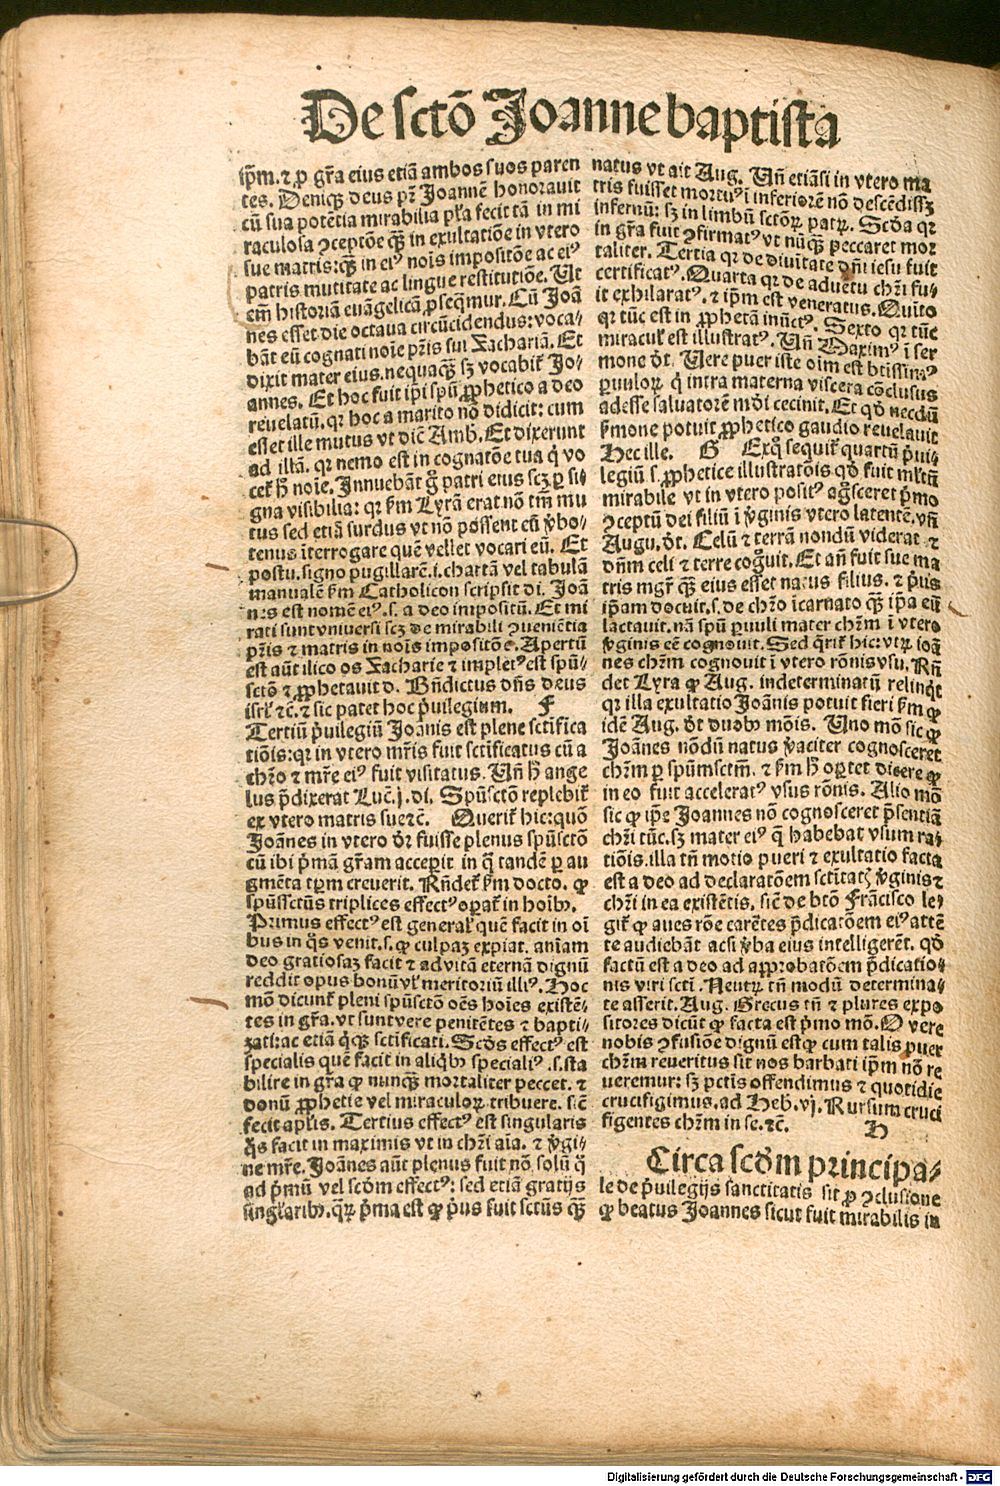 De sctō Joanne baptista
ip̄m. ⁊ ꝓ gr̄a eius etiā ambos suos paren
tes. Deniqꝫ deus pr̄ Joannē honorauit
cū sua potētia mirabilia pl'a fecit tā in mi
raculosa ꝯceptōe qꝫ in exultatiōe in vtero
sue matris: qꝫ in ei⁹ nois impositōe ac ei⁹
patris mutitate ac lingue restitutiōe. Ut
em̄ historiā euāgelicā ꝓseqmur. Cū Joā
nes esset die octaua circūcidendus: voca⸗
bāt eū cognati noīe pr̄is sui Zachariā. Et
dixit mater eius. nequaqꝫ sꝫ vocabit̄ Jo⸗
annes. Et hoc fuit ip̄i spū ꝓphetico a deo
reuelatū. qꝛ hoc a marito nō didicit: cum
esset ille mutus vt dic̄ Amb. Et dixerunt
ad illā. qꝛ nemo est in cognatōe tua q̇ vo
cet̄ h̄ noīe. Innuebāt g̊ patri eius scꝫ ꝑ si⸗
gna visibilia: qꝛ km̄ Lyrā erat nō tm̄ mu
tus sed etiā surdus vt nō possent eū v̓bo⸗
tenus īterrogare quē vellet vocari eū. Et
postu. signo pugillarē .i. chartā vel tabulā
manualē km̄ Catholicon scripsit di. Joā
nes est nomē ei⁹. s. a deo impositū. Et mi
rati sunt vniuersi scꝫ de mirabili ꝯueniētia
pr̄is ⁊ matris in nois impositōe. Apertū
est aūt ilico os Zacharie ⁊ implet⁹ est spū⸗
sctō ⁊ ꝓphetauit d. Bn̄dictus dn̄s deus
isrl' ⁊c̄. ⁊ sic patet hoc p̓uilegium. F
Tertiū p̓uilegiū Joānis est plene sctifica
tiōis: qꝛ in vtero mr̄is fuit sctificatus cū a
chr̄o ⁊ mr̄e ei⁹ fuit visitatus. Un̄ h̄ ange
lus p̄dixerat Luc̄. j. di. Spūsctō replebit̄
ex vtero matris sue ⁊c̄. Querit̄ hic: quō
Joānes in vtero dr̄ fuisse plenus spūsctō
cū ibi p̓mā gr̄am accepit in q̄ tandē ꝑ au
gmēta tꝑm creuerit. Rn̄det̄ km̄ docto. ꝙ
spūssctūs triplices effect⁹ oꝑat̄ in hoīb⁹.
Primus effect⁹ est general' quē facit in oī
bus in q̇s venit. s. ꝙ culpaꝫ expiat. animam
deo gratiosaꝫ facit ⁊ ad vitā eternā dignū
reddit opus bonū vl' meritoriū illi⁹. Hoc
mō dicunt̄ pleni spūsctō oēs hoīes existē⸗
tes in gr̄a. vt sunt vere penitētes ⁊ bapti⸗
zati: ac etiā q̇qꝫ sctificati. Scd̓s effect⁹ est
specialis quē facit in aliq̇b⁹ speciali⁹ .s. sta
bilire in gr̄a ꝙ nunqꝫ mortaliter peccet. ⁊
donū ꝓphetie vel miraculoꝝ tribuere. sic̄
fecit aplis. Tertius effect⁹ est singularis
q̇s facit in maximis vt in chr̄i aīa. ⁊ v̓gi⸗
ne mr̄e. Joānes aūt plenus fuit nō solū q̄
ad p̓mū vel scd̓m effect⁹: sed etiā gratijs
singl'arib⁹. qꝝ p̓ma est ꝙ p̓us fuit sctūs qꝫ
natus vt ait Aug. Un̄ etiāsi in vtero ma
tris fuisset mortu⁹ ī inferiorē nō descēdissꝫ
infernū: sꝫ in limbū sctōꝝ patꝝ. Scd̓a qꝛ
in gr̄a fuit ꝯfirmat⁹ vt nūqꝫ peccaret mor
taliter. Tertia qꝛ de diuītate dn̄i iesu fuit
certificat⁹. Quarta qꝛ de aduētu chr̄i fu⸗
it exhilarat⁹. ⁊ ip̄m est veneratus. Quīto
qꝛ tūc est in ꝓphetā inūct⁹. Sexto qꝛ tūc
miracul' est illustrat⁹. Un̄ Maxim⁹ ī ser
mone dt̄. Vere puer iste oīm est btissim⁹
ꝑuuloꝝ q̇ intra materna viscera cōclusus
adesse saluatorē mūdi cecinit. Et qd̓ necdū
s̓mone potuit ꝓphetico gaudio reuelauit
Hec ille. G Exq̊ sequit̄ quartū p̓ui⸗
legiū s. ꝓphetice illustratōis qd̓ fuit ml'tū
mirabile vt in vtero posit⁹ ag̊sceret p̓mo
ꝯceptū dei filiū ī v̓ginis vtero latentē. vn̄
Augu. dt̄. Celū ⁊ terrā nondū viderat ⁊
dn̄m celi ⁊ terre cog̊uit. Et an̄ fuit sue ma
tris mgr̄ qꝫ eius esset natus filius. ⁊ p̓us
ip̄am docuit. s. de chr̄o īcarnato qꝫ ip̄a eū
lactauit. nā spū ꝑuuli mater chr̄m ī vtero
v̓ginis eē cognouit. Sed q̄rit̄ hic: vtꝝ ioā
nes chr̄m cognouit ī vtero rōnis vsu. Rn̄
det Lyra ꝙ Aug. indeterminatū relinq̇t
qꝛ illa exultatio Joānis potuit fieri km̄ ꝙ
idē Aug. dt̄ duob⁹ mōis. Uno mō sic ꝙ
Joānes nōdū natus v̓aciter cognosceret
chr̄m ꝑ spūmsctm̄. ⁊ km̄ h̄ oportet dicere ꝙ
in eo fuit accelerat⁹ vsus rōnis. Alio mō
sic ꝙ ip̄e Joannes nō cognosceret p̄sentiā
chr̄i tūc. sꝫ mater ei⁹ q̄ habebat vsum ra⸗
tiōis. illa tn̄ motio pueri ⁊ exultatio facta
est a deo ad declaratōem sctītatꝭ v̓ginis ⁊
chr̄i in ea existētis. sic̄ de btō Frācisco le⸗
git̄ ꝙ aues rōe carētes p̄dicatōem ei⁹ attē
te audiebāt acsi v̓ba eius intelligerēt. qd̓
factū est a deo ad approbatōem p̄dicatio⸗
nis viri scti. Neutꝝ tn̄ modū determina⸗
te asserit. Aug. Grecus tn̄ ⁊ plures expo
sitores dicūt ꝙ facta est p̓mo mō. O vere
nobis ꝯfusiōe dignū est ꝙ cum talis puer
chr̄m reueritus sit nos barbati ip̄m nō re
ueremur: sꝫ pctīs offendimus ⁊ quotidie
crucifigimus. ad Heb. vj. Rursum cruci
figentes chr̄m in se. ⁊c̄. H
Circa scd̓m principa⸗
le de p̓uilegijs sanctitatis sit ꝓ ꝯclusione
ꝙ beatus Joannes sicut fuit mirabilis in
Digitalisierung gefördert durch die Deutsche Forschungsgemeinschaft - DFG